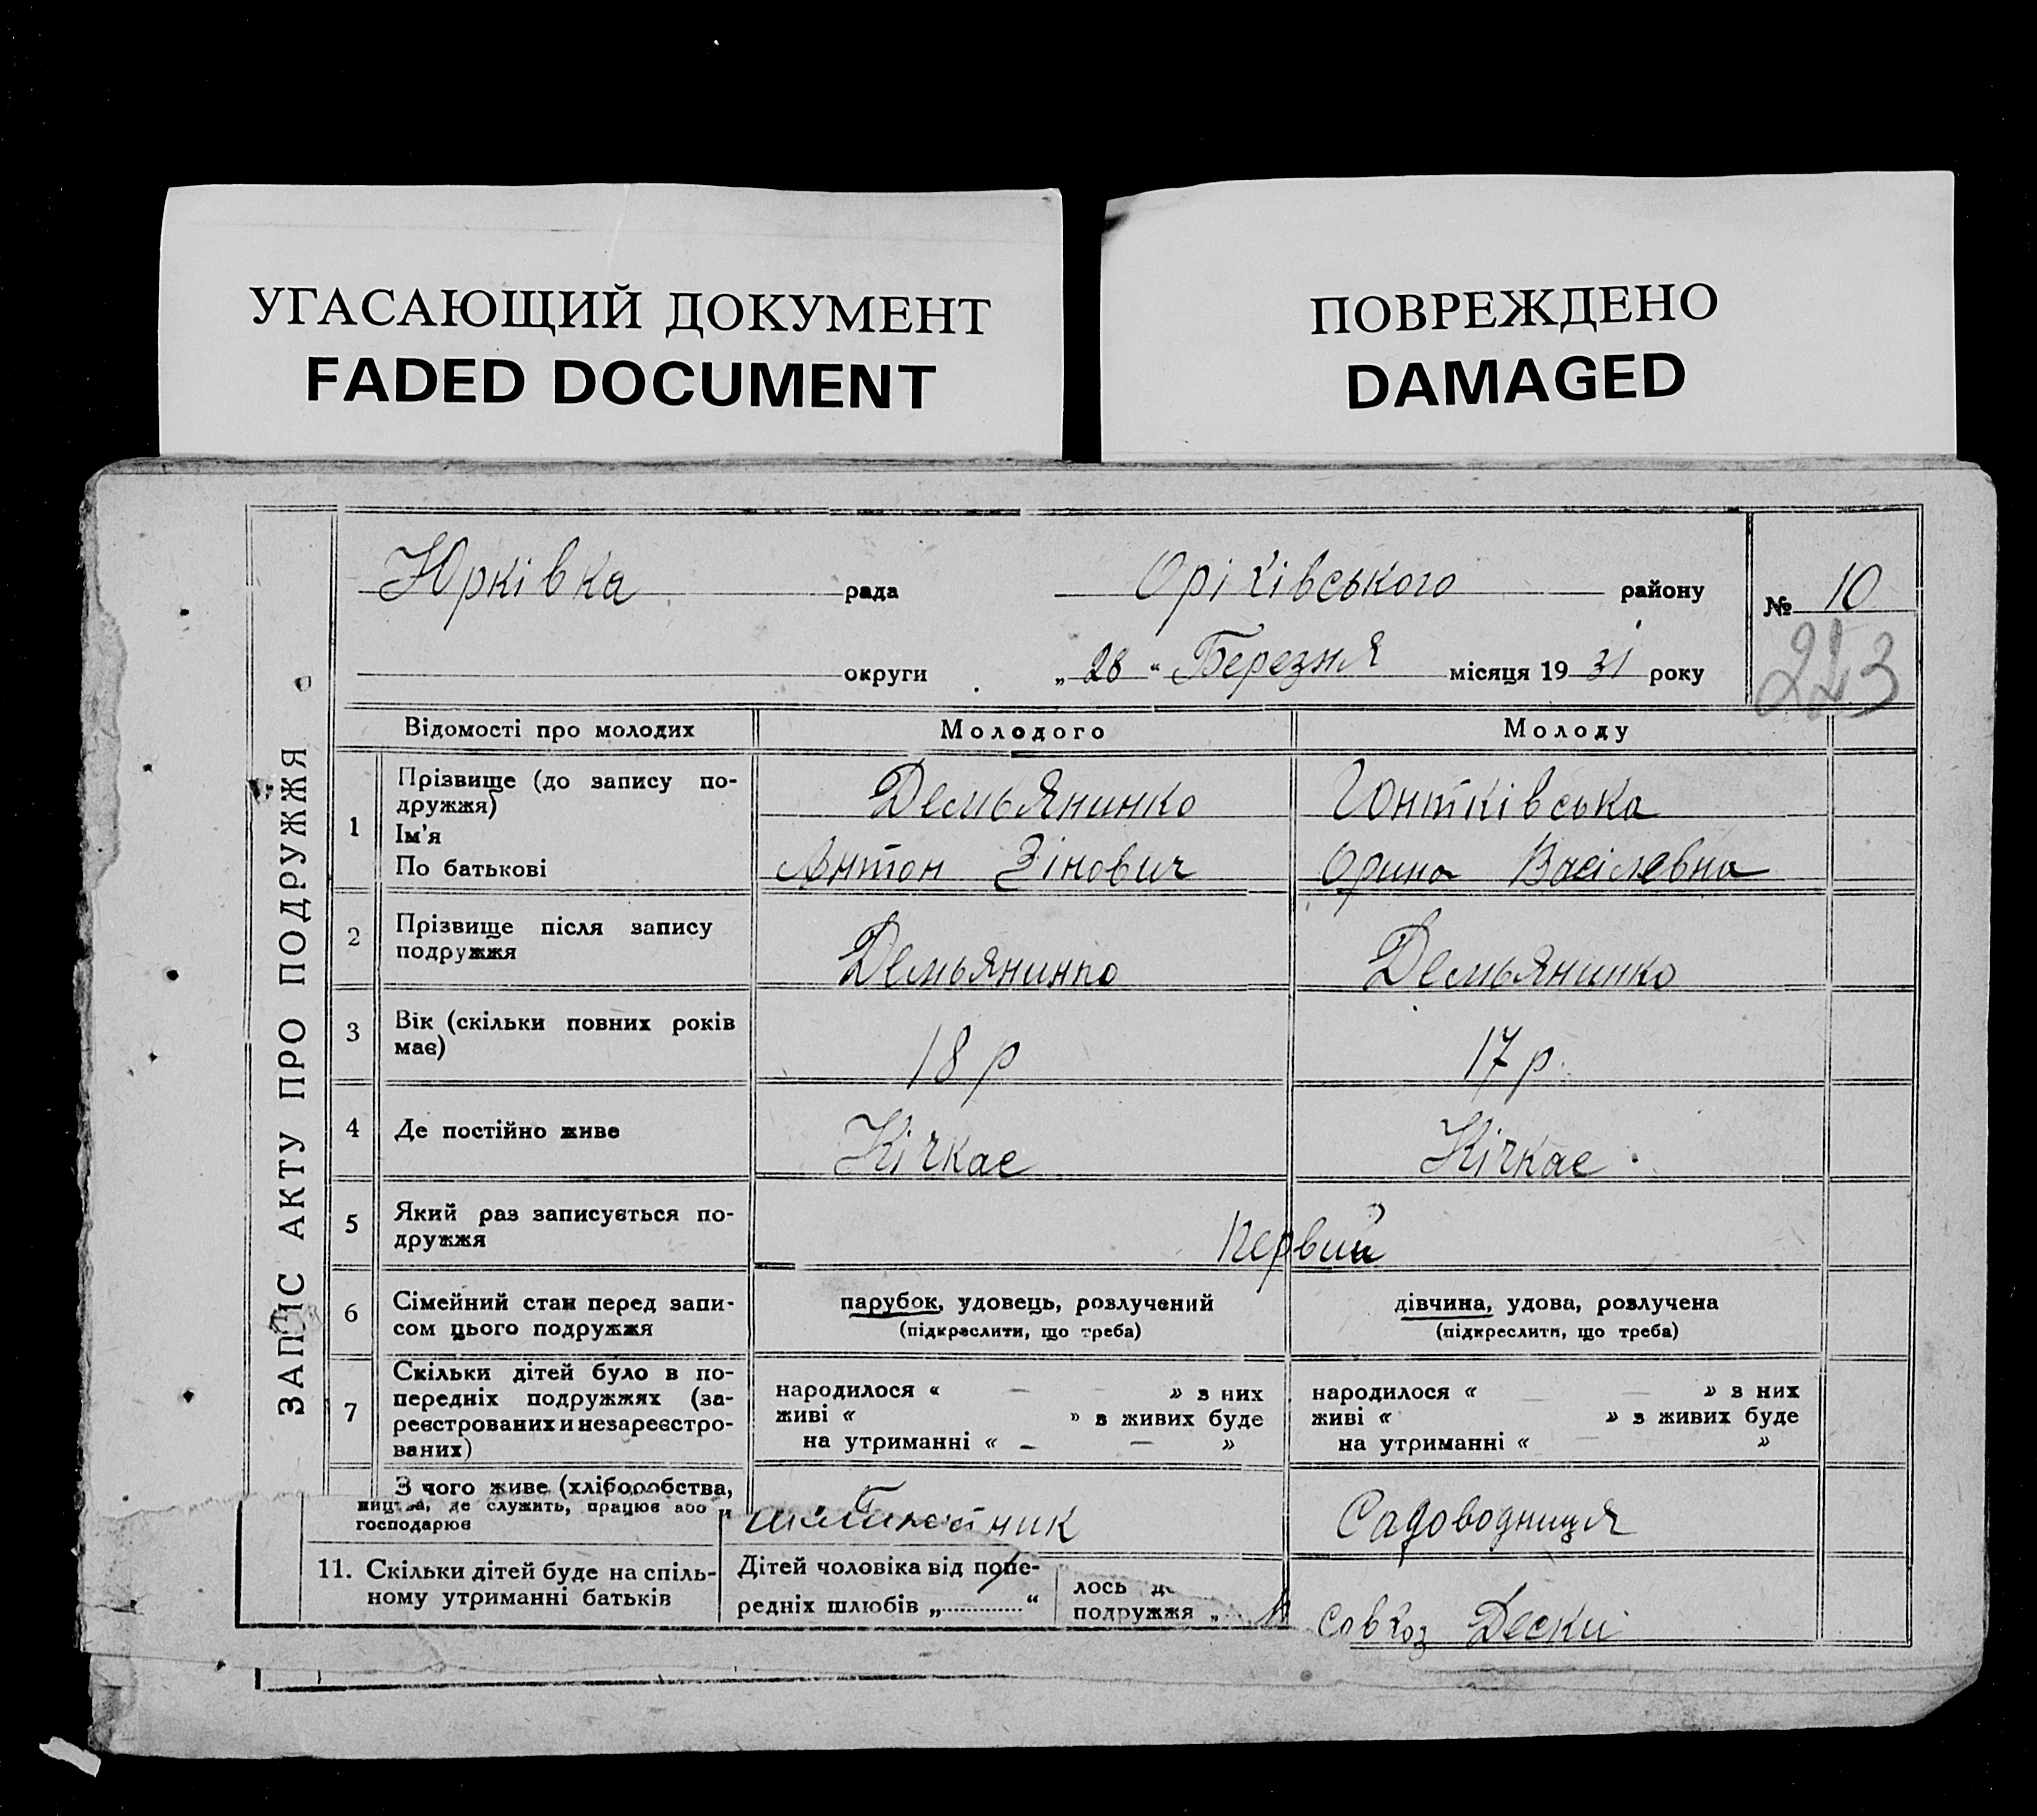 УГАСАЮЩИЙ ДОКУМЕНТ
FADED DOCUMENT
ПОВРЕЖДЕНО
DAMAGED
ЗАПИС АКТУ ПРО ПОДРУЖЖЯ
Юрківка рада Оріхівського району
№ 10
округи „ 28 “ Березня місяця 19 31 року
223
Відомості про молодих Молодого Молоду
1 Прізвище (до запису по-
дружжя)
Ім'я
По батькові
Демьянинко Гонтківська
Антон Зінович Орина Васілевна
2 Прізвище після запису
подружжя
Демьянинко Демьянинко
3 Вік (скільки повних років
має)
18 р 17 р.
4 Де постійно живе Кічкас Кічкас.
5 Який раз записується по-
дружжя
Первий
6 Сімейний стан перед запи-
сом цього подружжя
парубок, удовець, розлучений
(підкреслити, що треба)
дівчина, удова, розлучена
(підкреслити, що треба)
7 Скільки дітей було в по-
передніх подружжях (за-
реєстрованих и незареєстро-
ваних)
народилося « — » з них
живі « » з живих буде
на утриманні « — — »
народилося « — » з них
живі « » з живих буде
на утриманні « — »
З чого живе (хліборобства,
ництва, де служить, працює або
господарює
Садоводниця
11. Скільки дітей буде на спіль-
ному утриманні батьків
Дітей чоловіка від попе-
редніх шлюбів „ “
лось
подружжя „
совхоз Дески